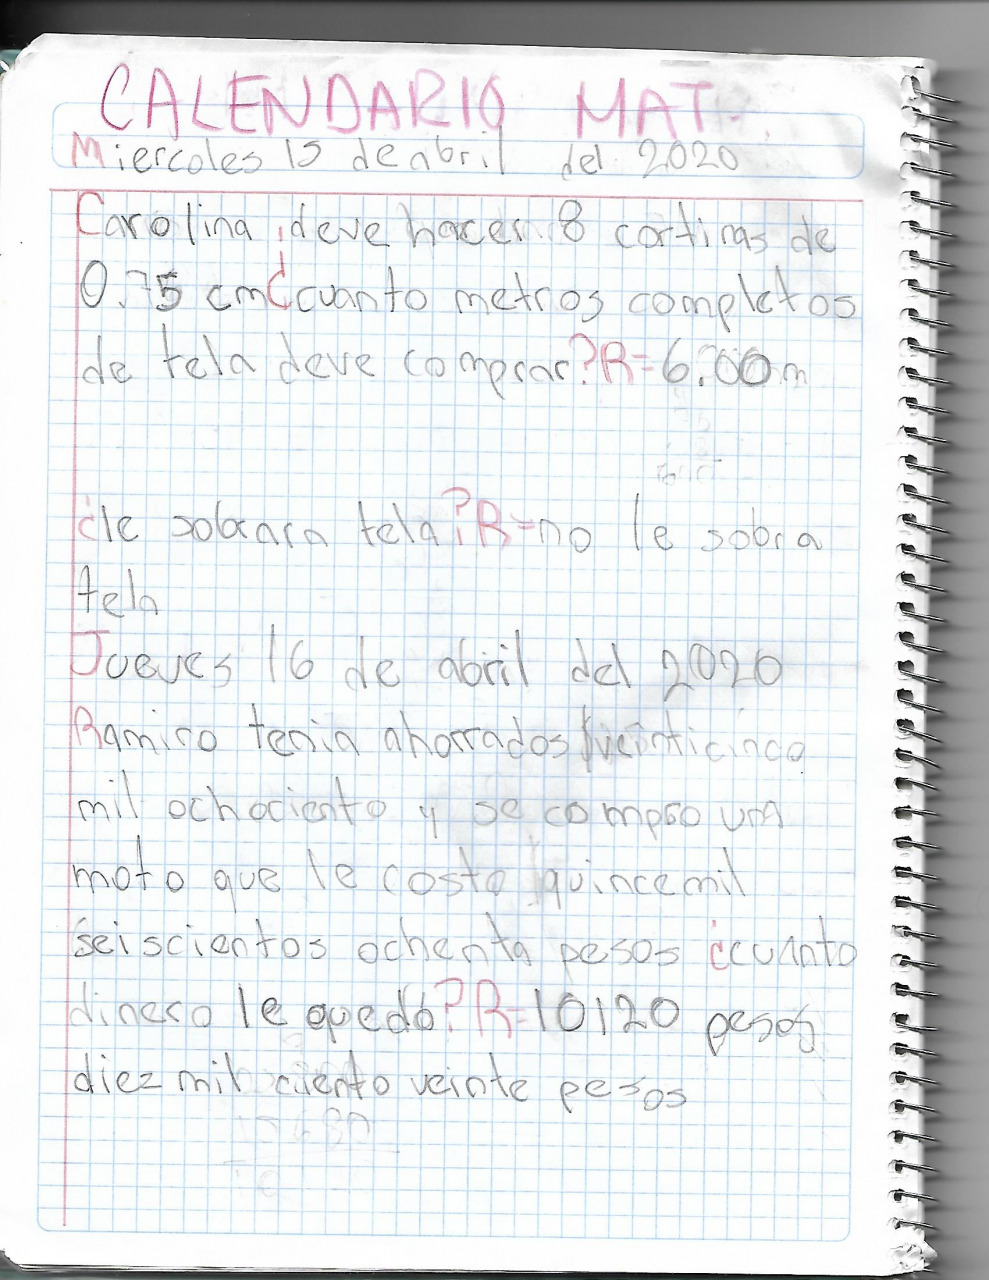 CALENDARIO MAT.
Miercoles 15 de abril del 2020
Carolina deve hacer 8 cortinas de
0.75 cm ¿cuanto metros completos
de tela deve comprar? R=6.00m
¿le sobrara tela? R=no le sobra
tela
Jueves 16 de abril del 2020
Ramiro tenia ahorrados veinticinco
mil ochociento y se compro una
moto que le costo quince mil
seiscientos ochenta pesos ¿cuanto
dinero le quedó? R=10120 pesos
diez mil ciento veinte pesos